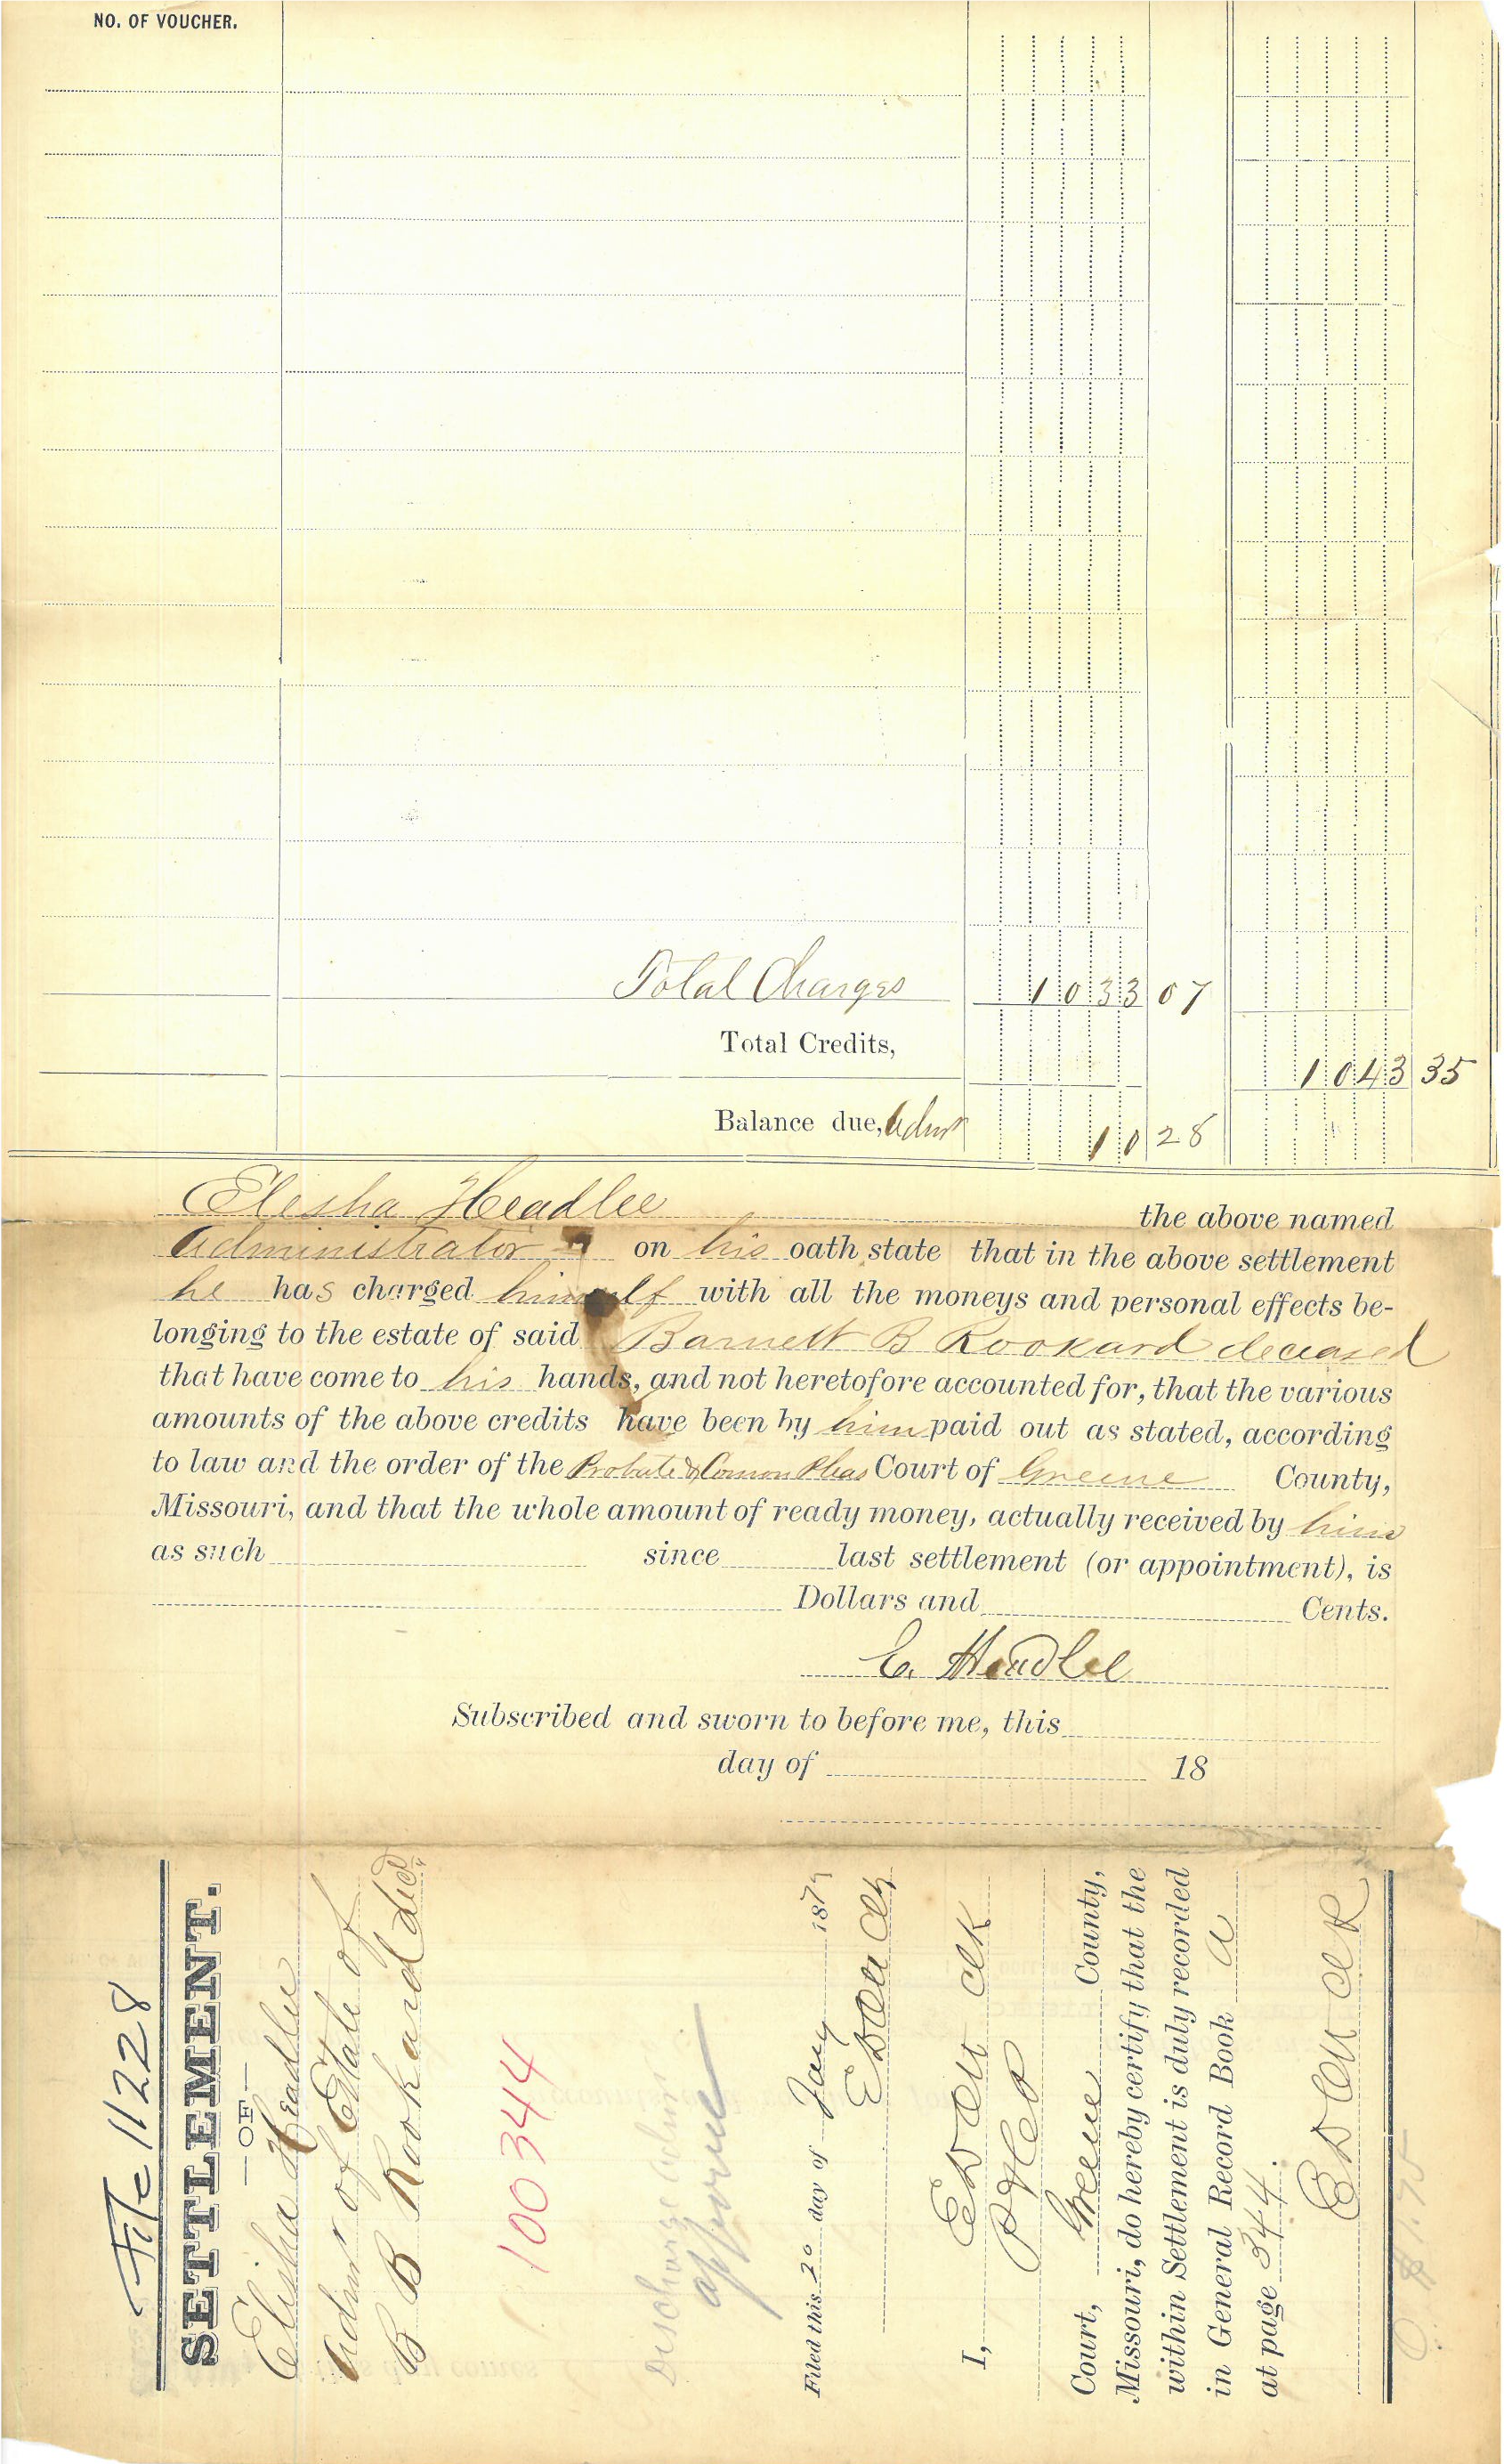 NO. OF VOUCHER.
Total Charges 1033 07
Total Credits, 1043 35
Balance due, Admr 10 28
Elesha Headlee the above named
Administrator on his oath state that in the above settlement
he has charged himself with all the moneys and personal effects be-
longing to the estate of said Barnett B Rookard deceased
that have come to his hands, and not heretofore accounted for, that the various
amounts of the above credits have been by him paid out as stated, according
to law and the order of the Probate & Comon Pleas Court of Greene County,
Missouri, and that the whole amount of ready money, actually received by him
as such since last settlement (or appointment), is
Dollars and Cents.
E. Headlee
Subscribed and sworn to before me, this
day of 18
File 11228
SETTLEMENT.
—OF—
Elisha Headlee
Admr of Estate of
B B Rookard Decd
100344
Discharge Admr
approved
Filed this 20 day of Jany 187
Clk
I, Clk
Court, Greene County,
Missouri, do hereby certify that the
within Settlement is duly recorded
in General Record Book A
at page 344.
Clk